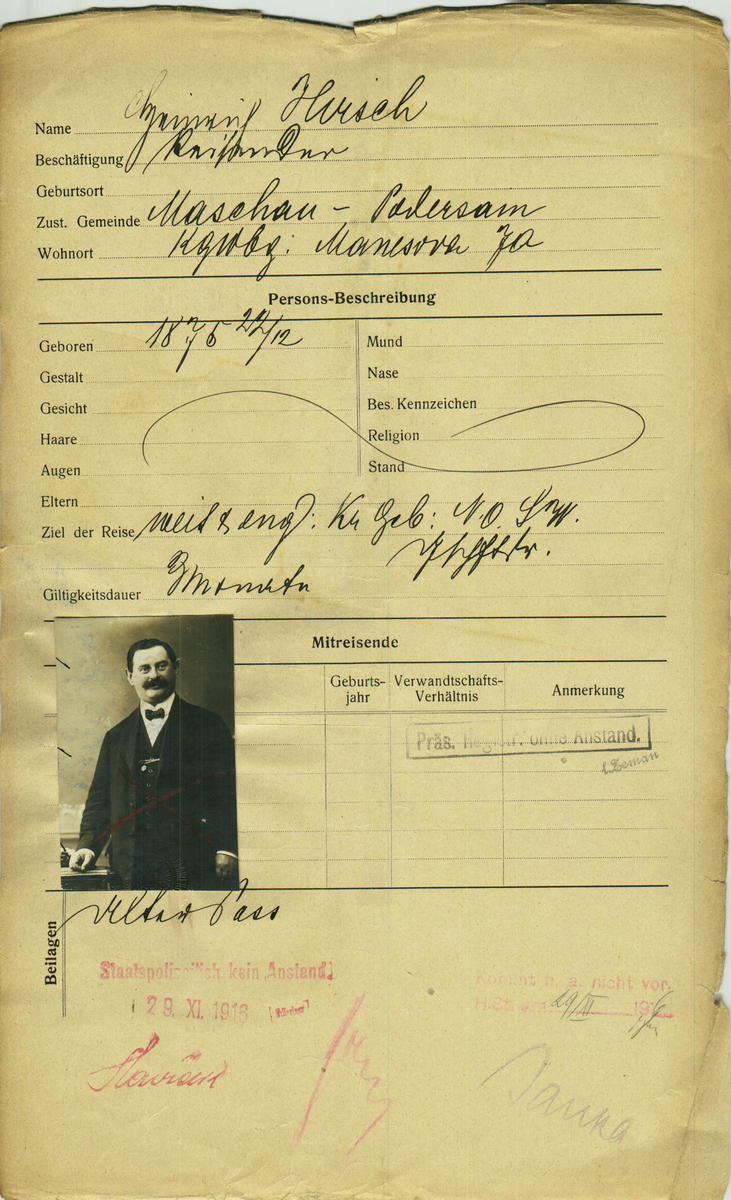 Name Heinrich Hirsch
Beschäftigung Reisender
Geburtsort
Zust. Gemeinde Maschau - Podersam
Wohnort Kgl Wbg: Manesova 70
Persons-Beschreibung
Geboren 1875 22/12
Gestalt
Gesicht
Haare
Augen
Mund
Nase
Bes. Kennzeichen
Religion
Stand
Eltern
Ziel der Reise weit & eng: Kr Geb: N. O. S. W.
Giltigkeitsdauer 3 Monate
Mitreisende
Geburts-
jahr
Verwandtschafts-
Verhältnis
Anmerkung
Präs. Registr. ohne Anstand.
Zeman
Beilagen
Alter Pass
Staatspolizeilich kein Anstand.
29. XI. 1916
kommt h. a. nicht vor.